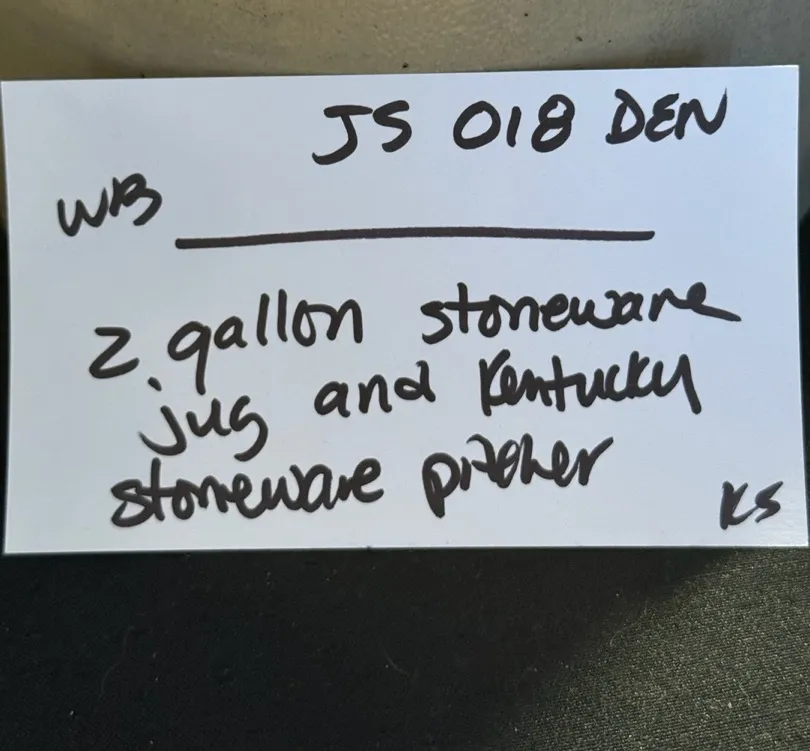 JS 018 DEN
WB
2 gallon stoneware
jug and Kentucky
stoneware pitcher
KS